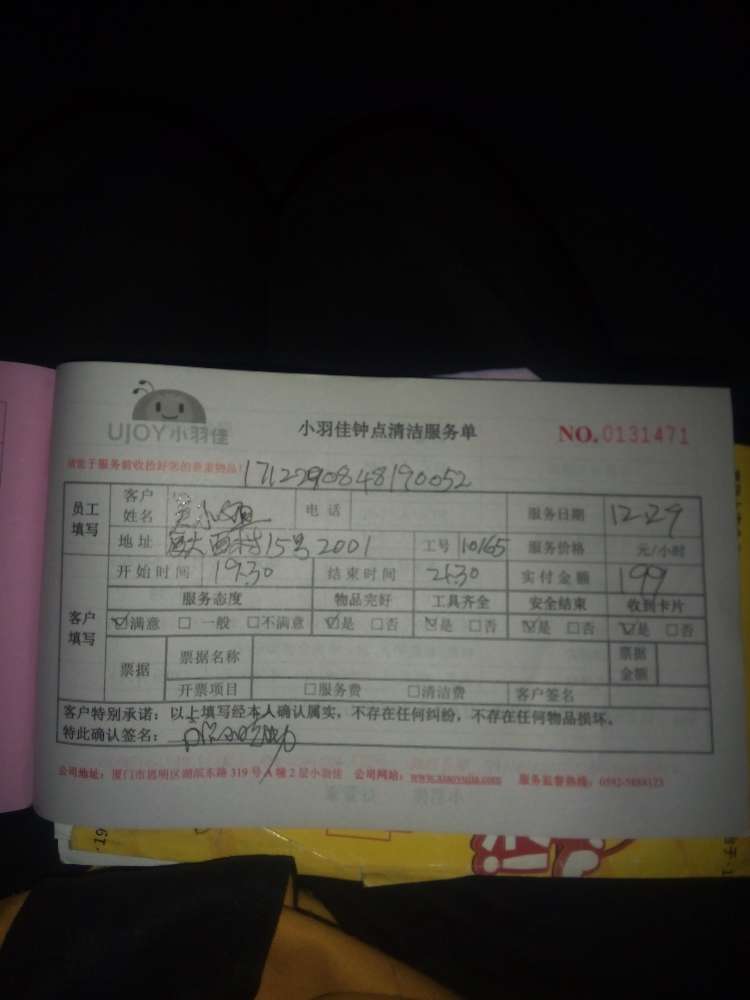 UJOY小羽佳
小羽佳钟点清洁服务单
NO.0131471
171229084819052
员工填写
客户姓名
电话
服务日期 12.29
地址 15号2001 工号 10165 服务价格 元/小时
开始时间 19.30 结束时间 21.30 实付金额 199
客户填写
服务态度 物品完好 工具齐全 安全结束 收到卡片
☑满意 □一般 □不满意 ☑是 □否 ☑是 □否 ☑是 □否 ☑是 □否
票据 票据名称 票据金额
开票项目 □服务费 □清洁费 客户签名
客户特别承诺:以上填写经本人确认属实,不存在任何纠纷,不存在任何物品损坏。
特此确认签名:
公司地址:厦门市思明区湖滨东路319号A幢2层小羽佳 公司网站:www.xiaoyujia.com 服务监督热线: